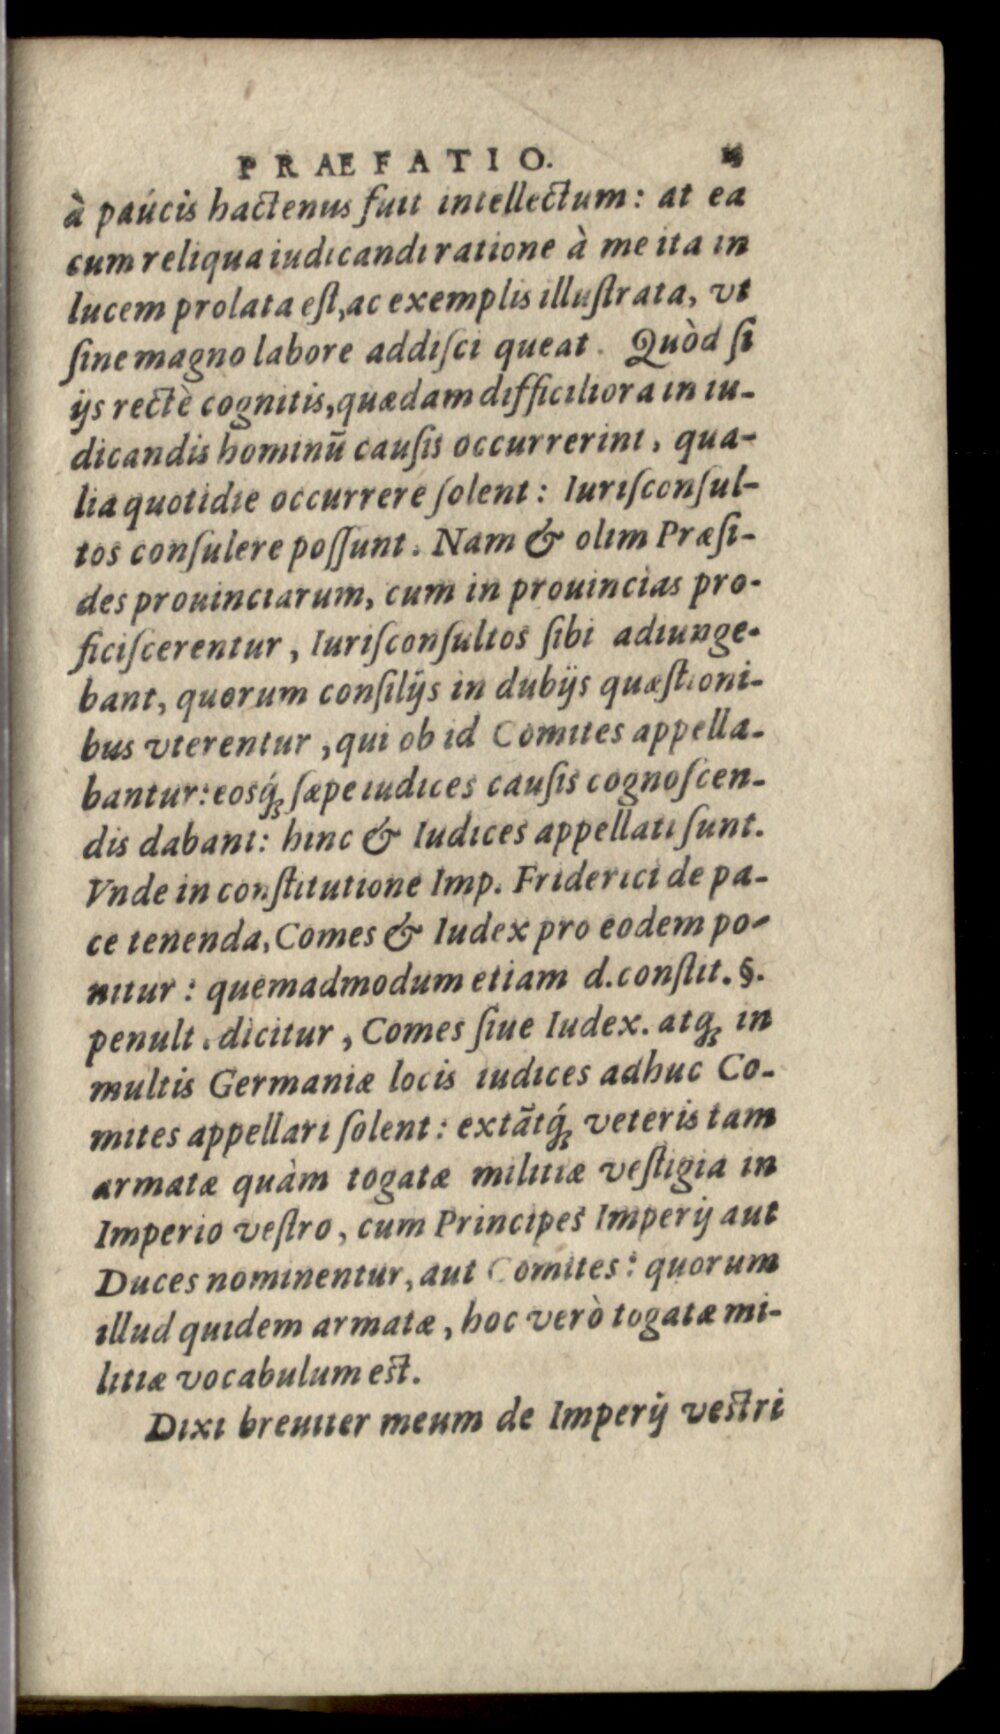 PRAEFATIO.
à paucis hactenus fuit intellectum: at ea
cum reliqua iudicandi ratione à me ita in
lucem prolata eſt, ac exemplis illuſtrata, vt
ſine magno labore addiſci queat. Quòd ſi
ijs rectè cognitis, quædam difficiliora in iu-
dicandis hominũ cauſis occurrerint, qua-
lia quotidie occurrere ſolent: Iuriſconſul-
tos conſulere poſſunt. Nam & olim Præſi-
des prouinciarum, cum in prouincias pro-
ficiſcerentur, Iuriſconſultos ſibi adiunge-
bant, quorum conſilijs in dubijs quæſtioni-
bus vterentur, qui ob id Comites appella-
bantur: eosq́ꝫ ſæpe iudices cauſis cognoſcen-
dis dabant: hinc & Iudices appellati ſunt.
Vnde in conſtitutione Imp. Friderici de pa-
ce tenenda, Comes & Iudex pro eodem po-
nitur: quemadmodum etiam d. conſtit. §.
penult. dicitur, Comes ſiue Iudex. atqꝫ in
multis Germaniæ locis iudices adhuc Co-
mites appellari ſolent: extãtq́ꝫ veteris tam
armatæ quàm togatæ militiæ veſtigia in
Imperio veſtro, cum Principes Imperij aut
Duces nominentur, aut Comites: quorum
illud quidem armatæ, hoc verò togatæ mi-
litiæ vocabulum est.
Dixi breuiter meum de Imperij vestri